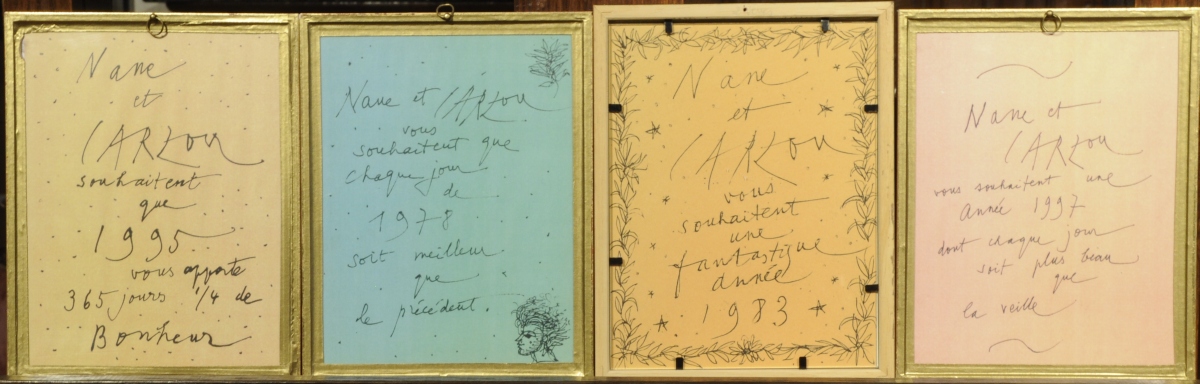 Nane
et
CARZOU
souhaitent
que
1995
vous apporte
365 jours 1/4 de
Bonheur
Nane et CARZOU
vous
souhaitent que
chaque jour
de
1978
soit meilleur
que
le précédent.
Nane
et
CARZOU
vous
souhaitent
une
fantastique
année
1983
Nane et
CARZOU
vous souhaitent une
année 1997
dont chaque jour
soit plus beau
que
la veille